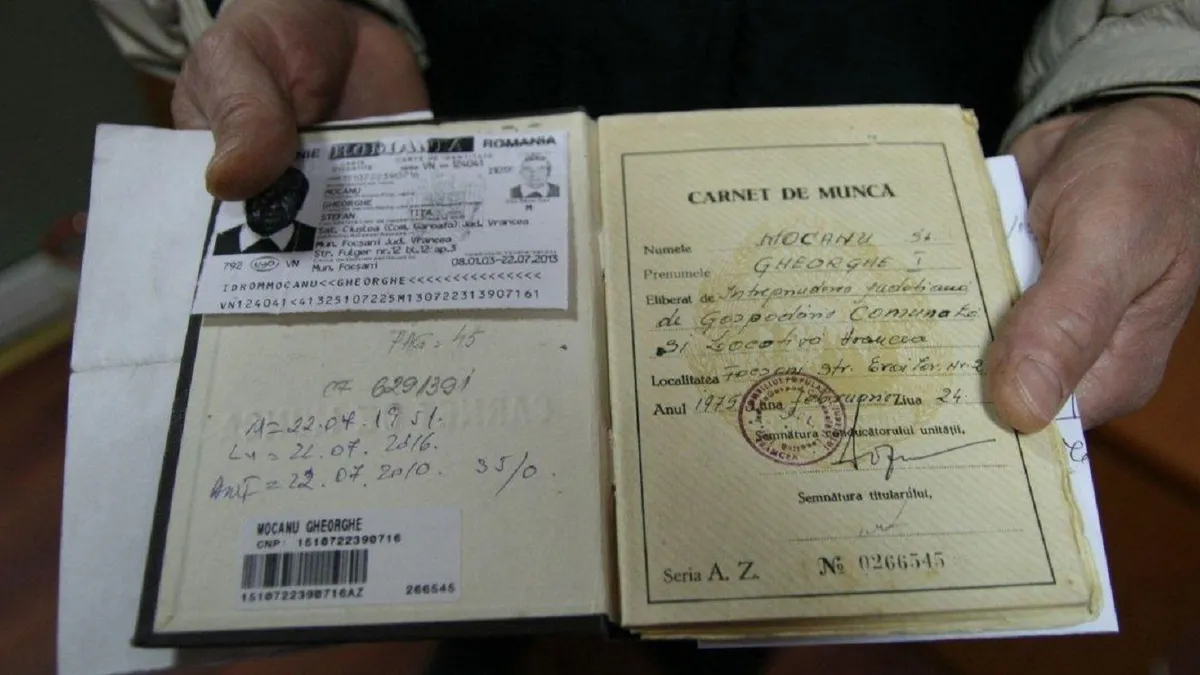 ROMANIA ROMANIA
CARTE DE IDENTITATE
VN 124041
1510722390716
MOCANU
GHEORGHE
STEFAN TITA
M
Jud. Vrancea
Mun. Focsani Jud. Vrancea
Str. Fulger nr.12 bl.12 ap.3
Mun. Focsani 08.01.03-22.07.2013
IDROMMOCANU<<GHEORGHE<<<<<<<<<<<<<<<
PAG = 45
629/391
N = 22.07.1951.
22.07.2016.
22.07.2010. 35/0.
MOCANU GHEORGHE
CNP: 1510722390716
1510722390716AZ 266545
CARNET DE MUNCA
Numele MOCANU St
Prenumele GHEORGHE I
Eliberat de Intreprinderea Judeteana
de Gospodărie Comunală
și Locativă Vrancea
Localitatea Focsani Str. Nr. 2
Anul 1975 Luna februarie Ziua 24
Semnătura conducătorului unității,
Semnătura titularului,
Seria A. Z. № 0266545